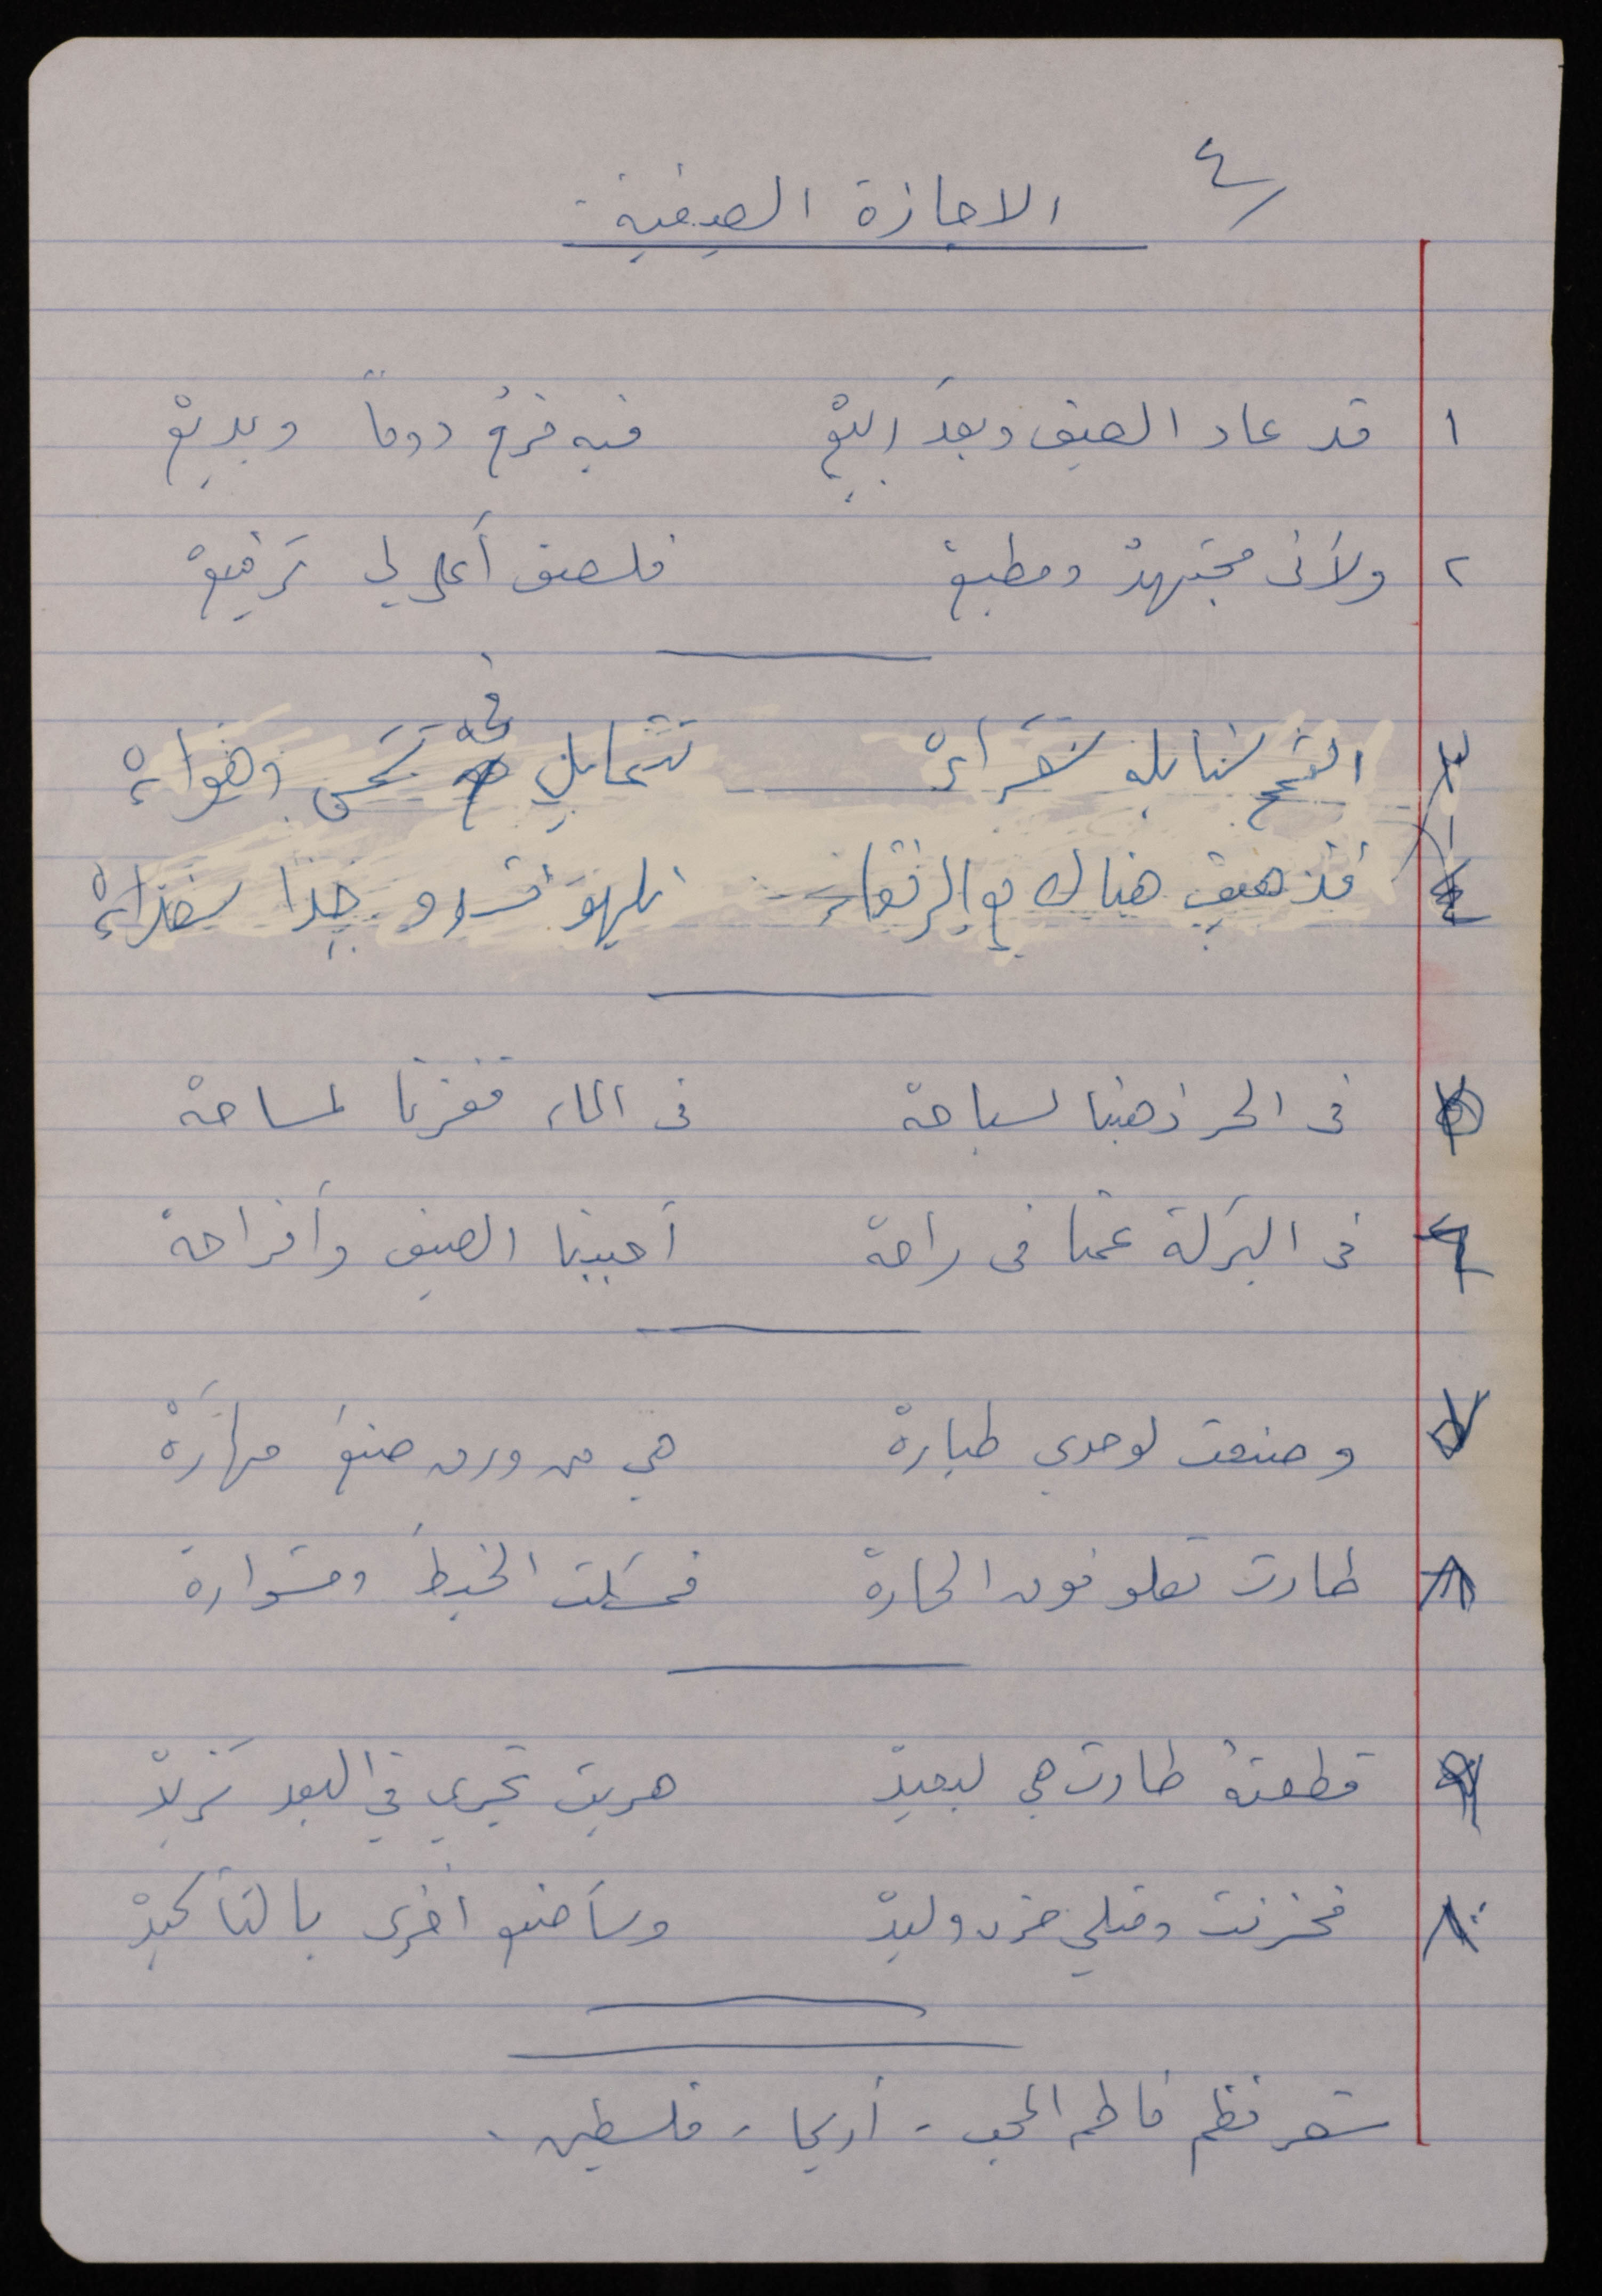 ٤
الاجازة الصيفية :
١ قد عاد الصيف وبعدَ ربيعْ فيه فرحٌ دوماً وبديعْ
٢ ولأنى مجتهدٌ ومطيعْ فلصف أعلى لي ترفيعْ
٣ القمح سنابله شقراءْ تتمايل في شمس وهواءْ
٤ فذهبت هناك مع الرفقاء نلهو نشدو جداً سعداءْ
فى الحر ذهبنا لسباحة فى الماء قفزنا لمساحة
فى البركة عمنا فى راحة أحببنا الصيف وأفراحة
وصنعت لوحدي طيارة هي من ورق صنعَ مهارَةْ
طارت تعلو فوق الحارة فمسَكت الخيطَ ومشوارة
قطعتهُ طارت هي لبعيدْ هربت تجري في البعد تزيدْ
فحزنت وقبلي حزن وليدْ وسأصنع أخرى بالتأكيدْ
شعر نظم فاطم المحب - أريحا - فلسطين .